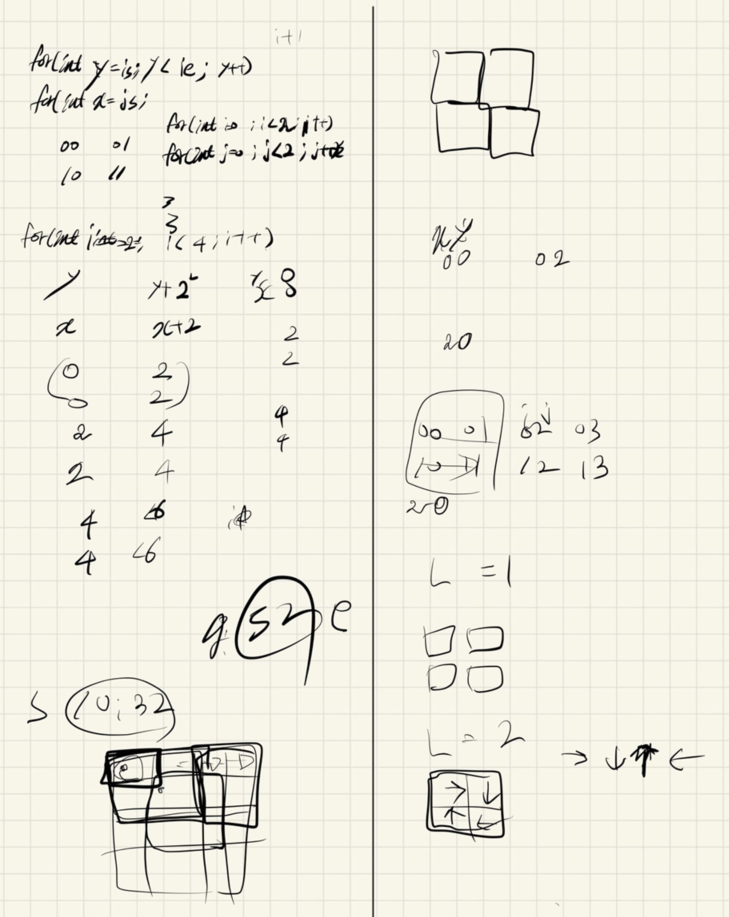 i+1
for(int y=is; y< ie; y++)
for(int x=js;
for(int i=0; i<2; i++)
00 01
for(int j=0; j<2; j++
10 11
}
}
i<4; i++)
y y+2
x x+2
2
2
0 2
0 2
4
2 4
4
2 4
4 6
4 6
52 e
S 10; 32
x y
00 02
20
00 01 02 03
12 13
20
L = 1
L = 2
→ ↓ ↑ ←
→ ↓
↑ ←